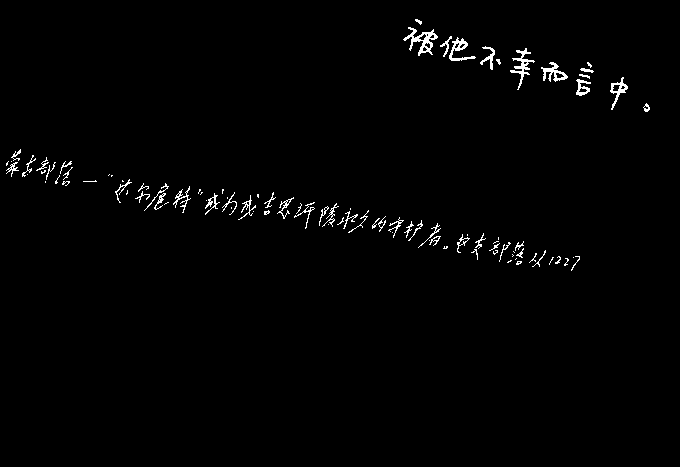 被他不幸而言中。
蒙古部落一“达尔扈特”成为成吉思汗陵永久的守护者。这支部落从1227